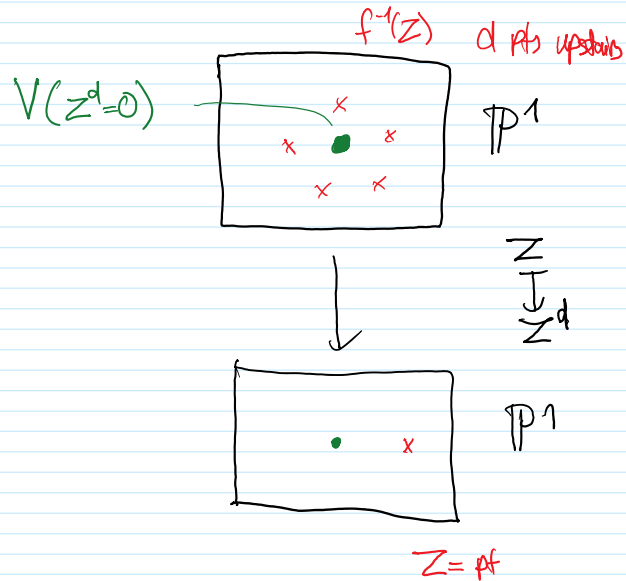 f⁻¹(Z) d pts upstairs
V(z^d=0)
ℙ¹
z
↧
z^d
ℙ1
Z = pt